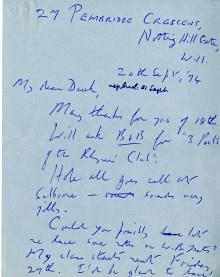 27 PEMBRIDGE CRESCENT,
Notting Hill Gate,
W.11.
20th Sept, '74
My dear Derek, replied 21 Sept
Many thanks for yrs of 18th
Will ask B & B for "3 Poets
of the Rhymers' Club".
Hope all goes well at
Selborne — sounds very
jolly.
Could you possibly let
me have some notes on W.B. Yeats?
My class starts next Friday,
27th. I'd be glad to have